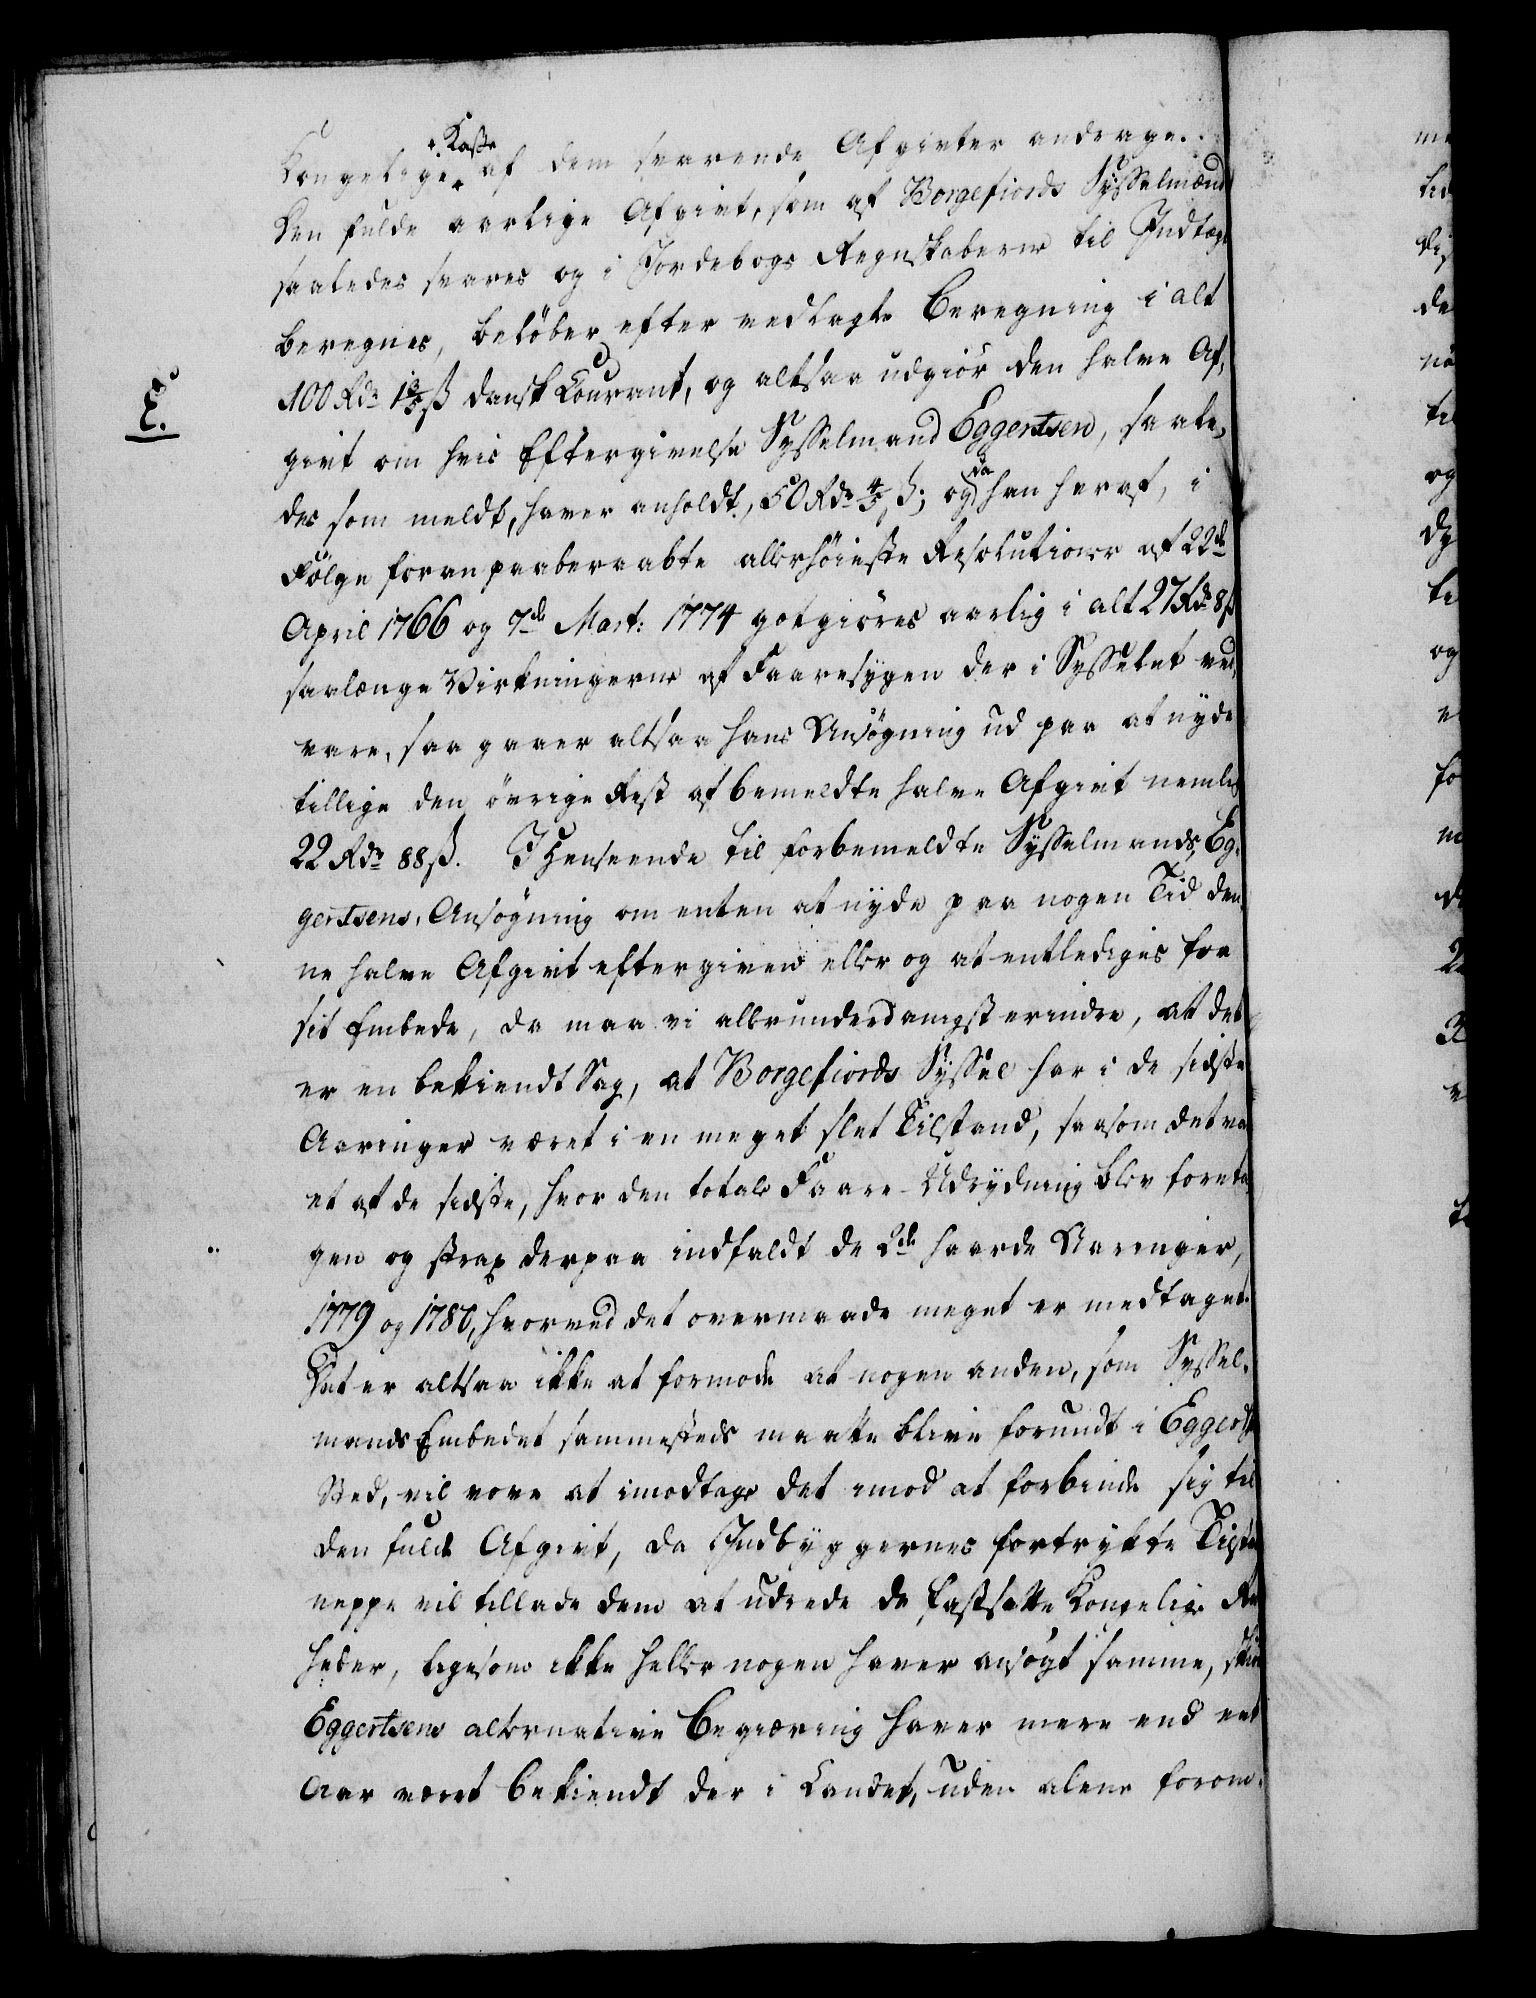 Kongelige Kasse af dem svarende Afgivter andrage.
Den fulde aarlige Afgivt, som af Borgefiords Sysselmænd
saaledes svares og i Jordebogs Regnskaberne til Indtægt
beregnes, belöber efter vedlagte Beregning i alt
E.
100 Rdr 1 3/5 ß dansk Courant, og altsaa udgiör den halve Af-
givt om hvis Eftergivelse Sysselmand Eggertsen, saale-
des som meldt, haver anholdt, 50 Rdr 4/5 ß; og da han heraf, i
Fölge foran paaberaabte allerhöieste Resolutioner af 22de
April 1766 og 7de Mart: 1774 gotgiöres aarlig i alt 27 Rdr 8 ß
saalænge Virkningerne af Faaresygen der i Sysselet ved-
vare, saa gaaer altsaa hans Ansögning ud paa at nyde
tillige den övrige Rest af bemeldte halve Afgivt nemlig
22 Rdr 88 ß. I Henseende til forbemeldte Sysselmands, Eg-
gertsens, Ansögning om enten at nyde paa nogen Tid den-
ne halve Afgivt eftergiven eller og at entlediges fra
sit Embede, da maa vi allerunderdanigst erindre, at det
er en bekiendt Sag, at Borgefiords Syssel har i de sidste
Aaringer været i en meget slet Tilstand, saasom det var
et af de sidste, hvor den totale Faare-Udrydning blev foreta-
gen og strax derpaa indfaldt de 2de haarde Aaringer,
1779 og 1780, hvorved det overmaade meget er medtaget.
Det er altsaa ikke at formode at nogen anden, som Syssel-
mands Embedet sammesteds maatte blive forundt i Eggerts
Sted, vil vove at imodtage det imod at forbinde sig til
den fulde Afgivt, da Indbyggernes fortrykte
neppe vil tillade dem at udrede de fastsatte Kongelige
heder, ligesom ikke heller nogen haver ansögt samme,
Eggertsens alternative Begiæring haver mere end eet
Aar været bekiendt der i Landet, uden alene forom-